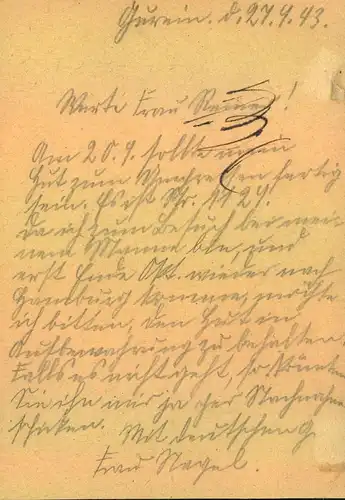 Gurein. d. 27.9.43.
Werte Frau !
Am 20.9. sollte mein
Hut zum fertig
sein. Es ist Nr. 1129.
Da ich zum Besuch bei mei-
nem Manne bin, und
erst Ende Okt. wieder nach
Hamburg komme, möchte
ich bitten, den Hut in
Aufbewahrung zu behalten.
Falls es nicht geht, so könnten
Sie ihn mir ja per Nachnahme
schicken. Mit deutschen G.
Frau Nagel.